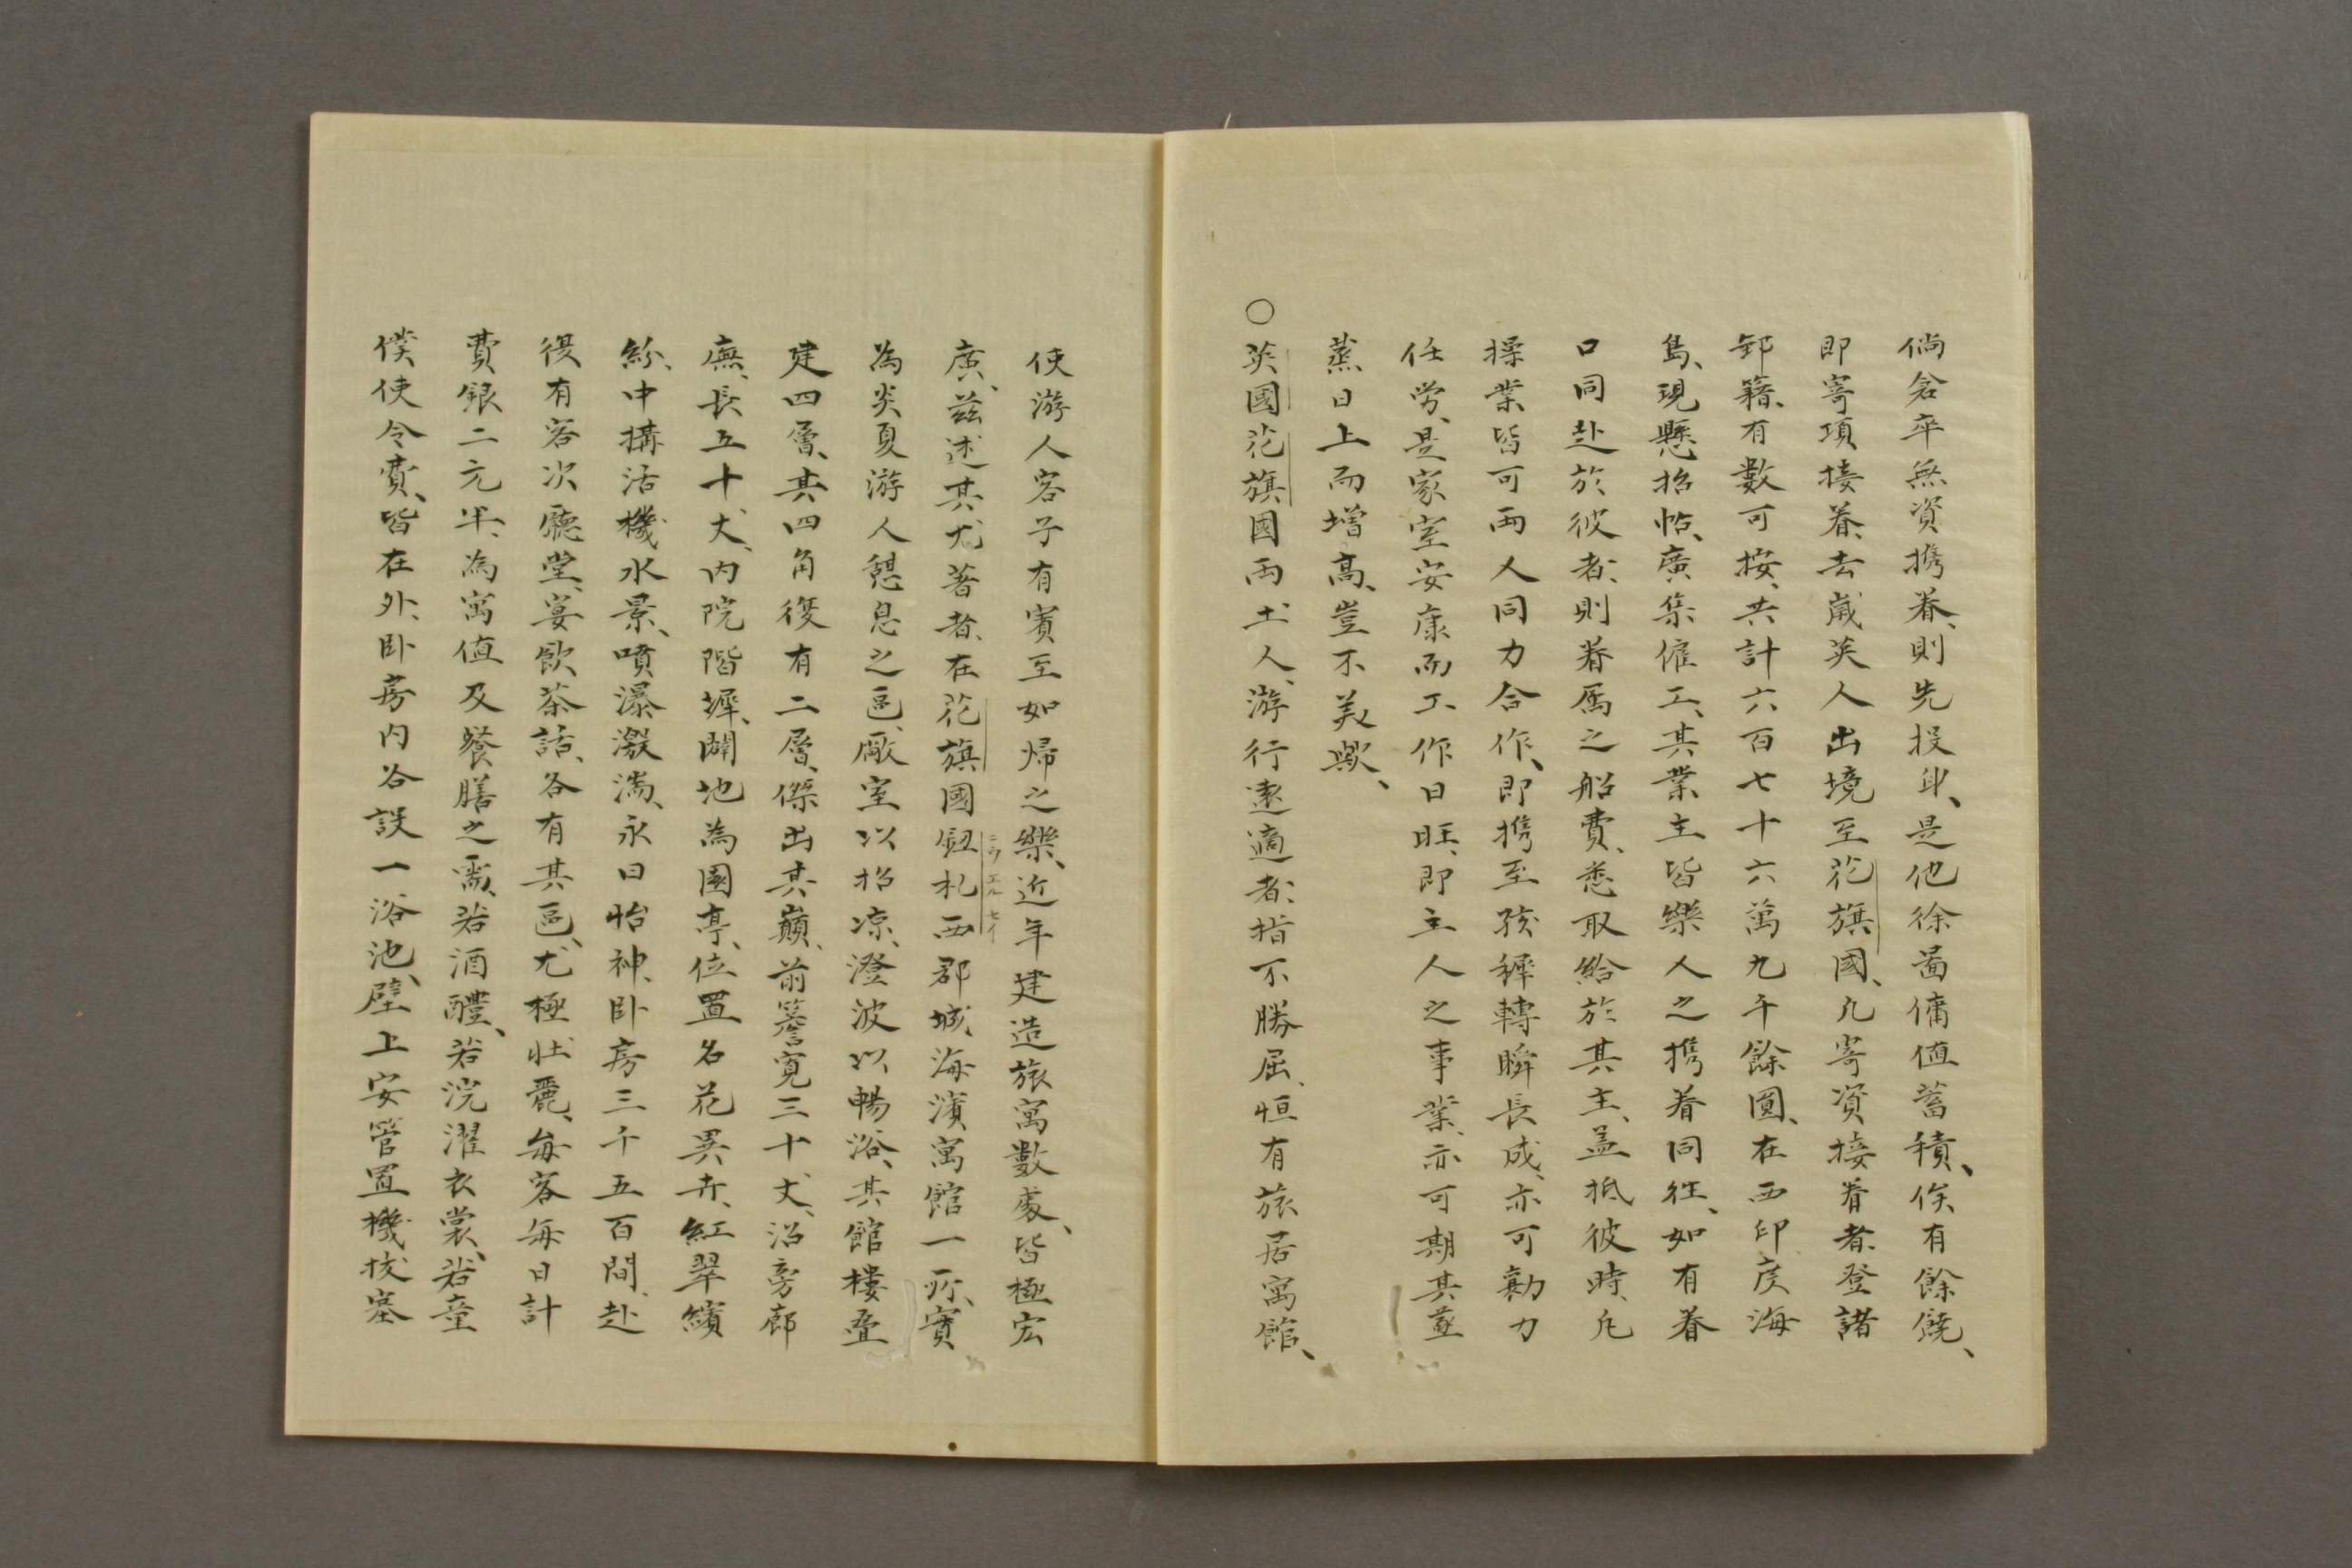 倘倉卒無資携眷、則先投身、是他徐啚傭值蓄積、俟有餘饒、
即寄項接眷、去歲英人出境至花旗國、凡寄資接眷者、登諸
郵籍、有數可按、共計六百七十六萬九千餘圓、在西印度海
島、現懸招帖、廣集僱工、其業主皆樂人之携眷同徃、如有眷
口同赴於彼者、則眷屬之船費、悉取給於其主、盖抵彼時、凡
操業皆可兩人同力合作、即携至孩穉轉瞬長成、亦可勷力
任勞、是家室安康而工作日旺、即主人之事業、亦可期其蒸
蒸日上而增高、豈不美歟、
○英國花旗國兩土人、游行遠適者、指不勝屈、恒有旅居寓館、
使游人客子有賓至如歸之樂、近年建造旅寓數處、皆極宏
廣、兹述其尤著者、在花旗國鈕札西郡城海濱寓館一所、實
ニウエルセイ
為炎夏游人憩息之區、厰室以招凉、澄波以暢浴、其館樓疊
建四層、其四角復有二層、傑出其巔、前簷寬三十丈、沿旁廊
廡、長五十丈、内院階墀、闢地為園亭、位置名花異卉、紅翠繽
紛、中搆活機水景、噴瀑激湍、永日怡神、卧房三千五百間、赴
復有客次廳堂、宴飲茶話、各有其區、尤極壯麗、每客每日計
費銀二元半、為寓值及餐膳之需、若酒醴、若浣濯衣裳、若童
僕使令費、皆在外、卧房内各設一浴池、壁上安管置機拔塞